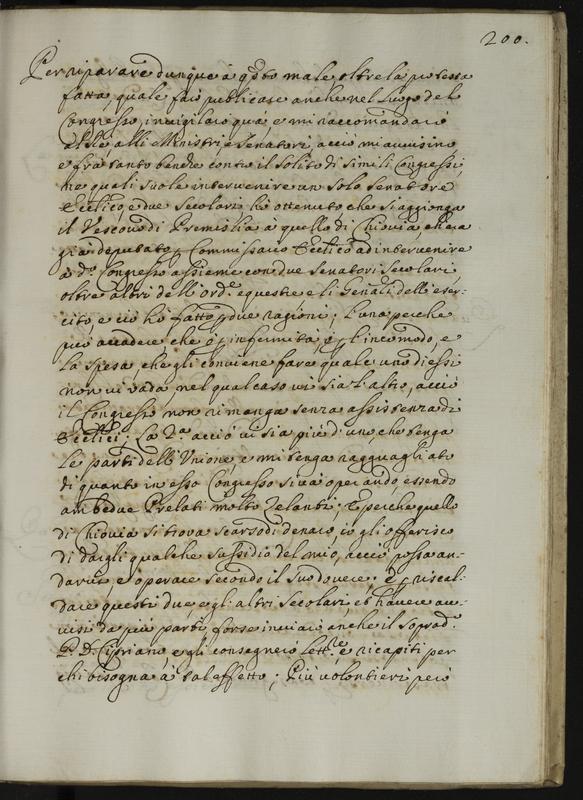 200.
Per riparare dunque à q̃sto male, oltre la protesta
fatta, quale farò publicare anche nel luogo del
Congresso, invigilarò quà, e mi raccomandarò
al Rè, alli Ministri, e Senatori, acciò mi avvisino
e frà tanto benche contro il solito di simili Congressi,
ne quali suole intervenire un solo Senatore
Eccl.ico, e due Secolari, hò ottenuto che si aggionga
il Vescovo di Premislia à quello di Chiovia, che era
già deputato p Commissario Eccl.ico ad intervenire
à d.º Congresso assieme con due Senatori Secolari
oltre altri dell'ord.e equestre e li Gen̄ali dell'eser-
cito, e ciò hò fatto p due ragioni; l'una perche
può accadere che ò p infermità, ò p l'incomodo, e
la spesa, che gli conviene fare quale uno di essi
non vi vada, nel qual caso vi sia l'altro, acciò
il Congresso non rimanga senza assistenza di
Eccl.ici; La 2.a acciò vi sia più d'uno, che tenga
le parti dell'Unione, e mi tenga ragguagliato
di quanto in esso Congresso si và operando, essendo
ambedue Prelati molto Zelanti; E perche quello
di Chiovia si trova scarso di denaro, io gli offerisco
di dargli qualche sussidio del mio, acciò possa an-
darvi, e operare secondo il suo dovere; e p riscal-
dare questi due, e gli altri Secolari, et havere av-
visi da più parti, forse inviarò anche il soprad.º
P. D. Cipriano, e gli consegnerò lett.re, e ricapiti per
chi bisogna à tal effetto; Più volontieri però